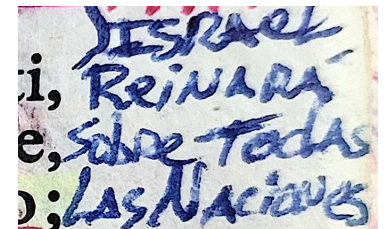 ISRAEL
ti, REiNARÁ
e, SobRE TodAS
o; LAS NACiONES